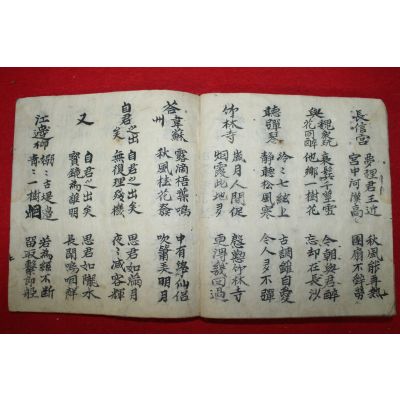 長信宮
夢裡君王近 秋風能再熱
宮中河漢高 團扇不辞勞
與
花同醉
衰鬂千莖雪 今朝與君醉
他鄉一樹花 忘却在長沙
聽彈琴
泠〻七絃上 古調雖自愛
靜聽松風寒 今人多不彈
竹林寺
歲月人間促 慇懃竹林寺
烟霞此地多 更得幾回過
荅韋蘇州
露滴梧葉鳴 中有學仙侶
秋風桂花發 吹簫弄明月
自君之出矣
自君之出矣 思君如滿月
無復理殘機 夜〻減容輝
又
自君之出矣 思君如隴水
寶鏡爲誰明 長聞嗚咽聲
江邊柳
嫋〻古堤邊 若爲絲不斷
青〻一樹烟 留取繫郎船